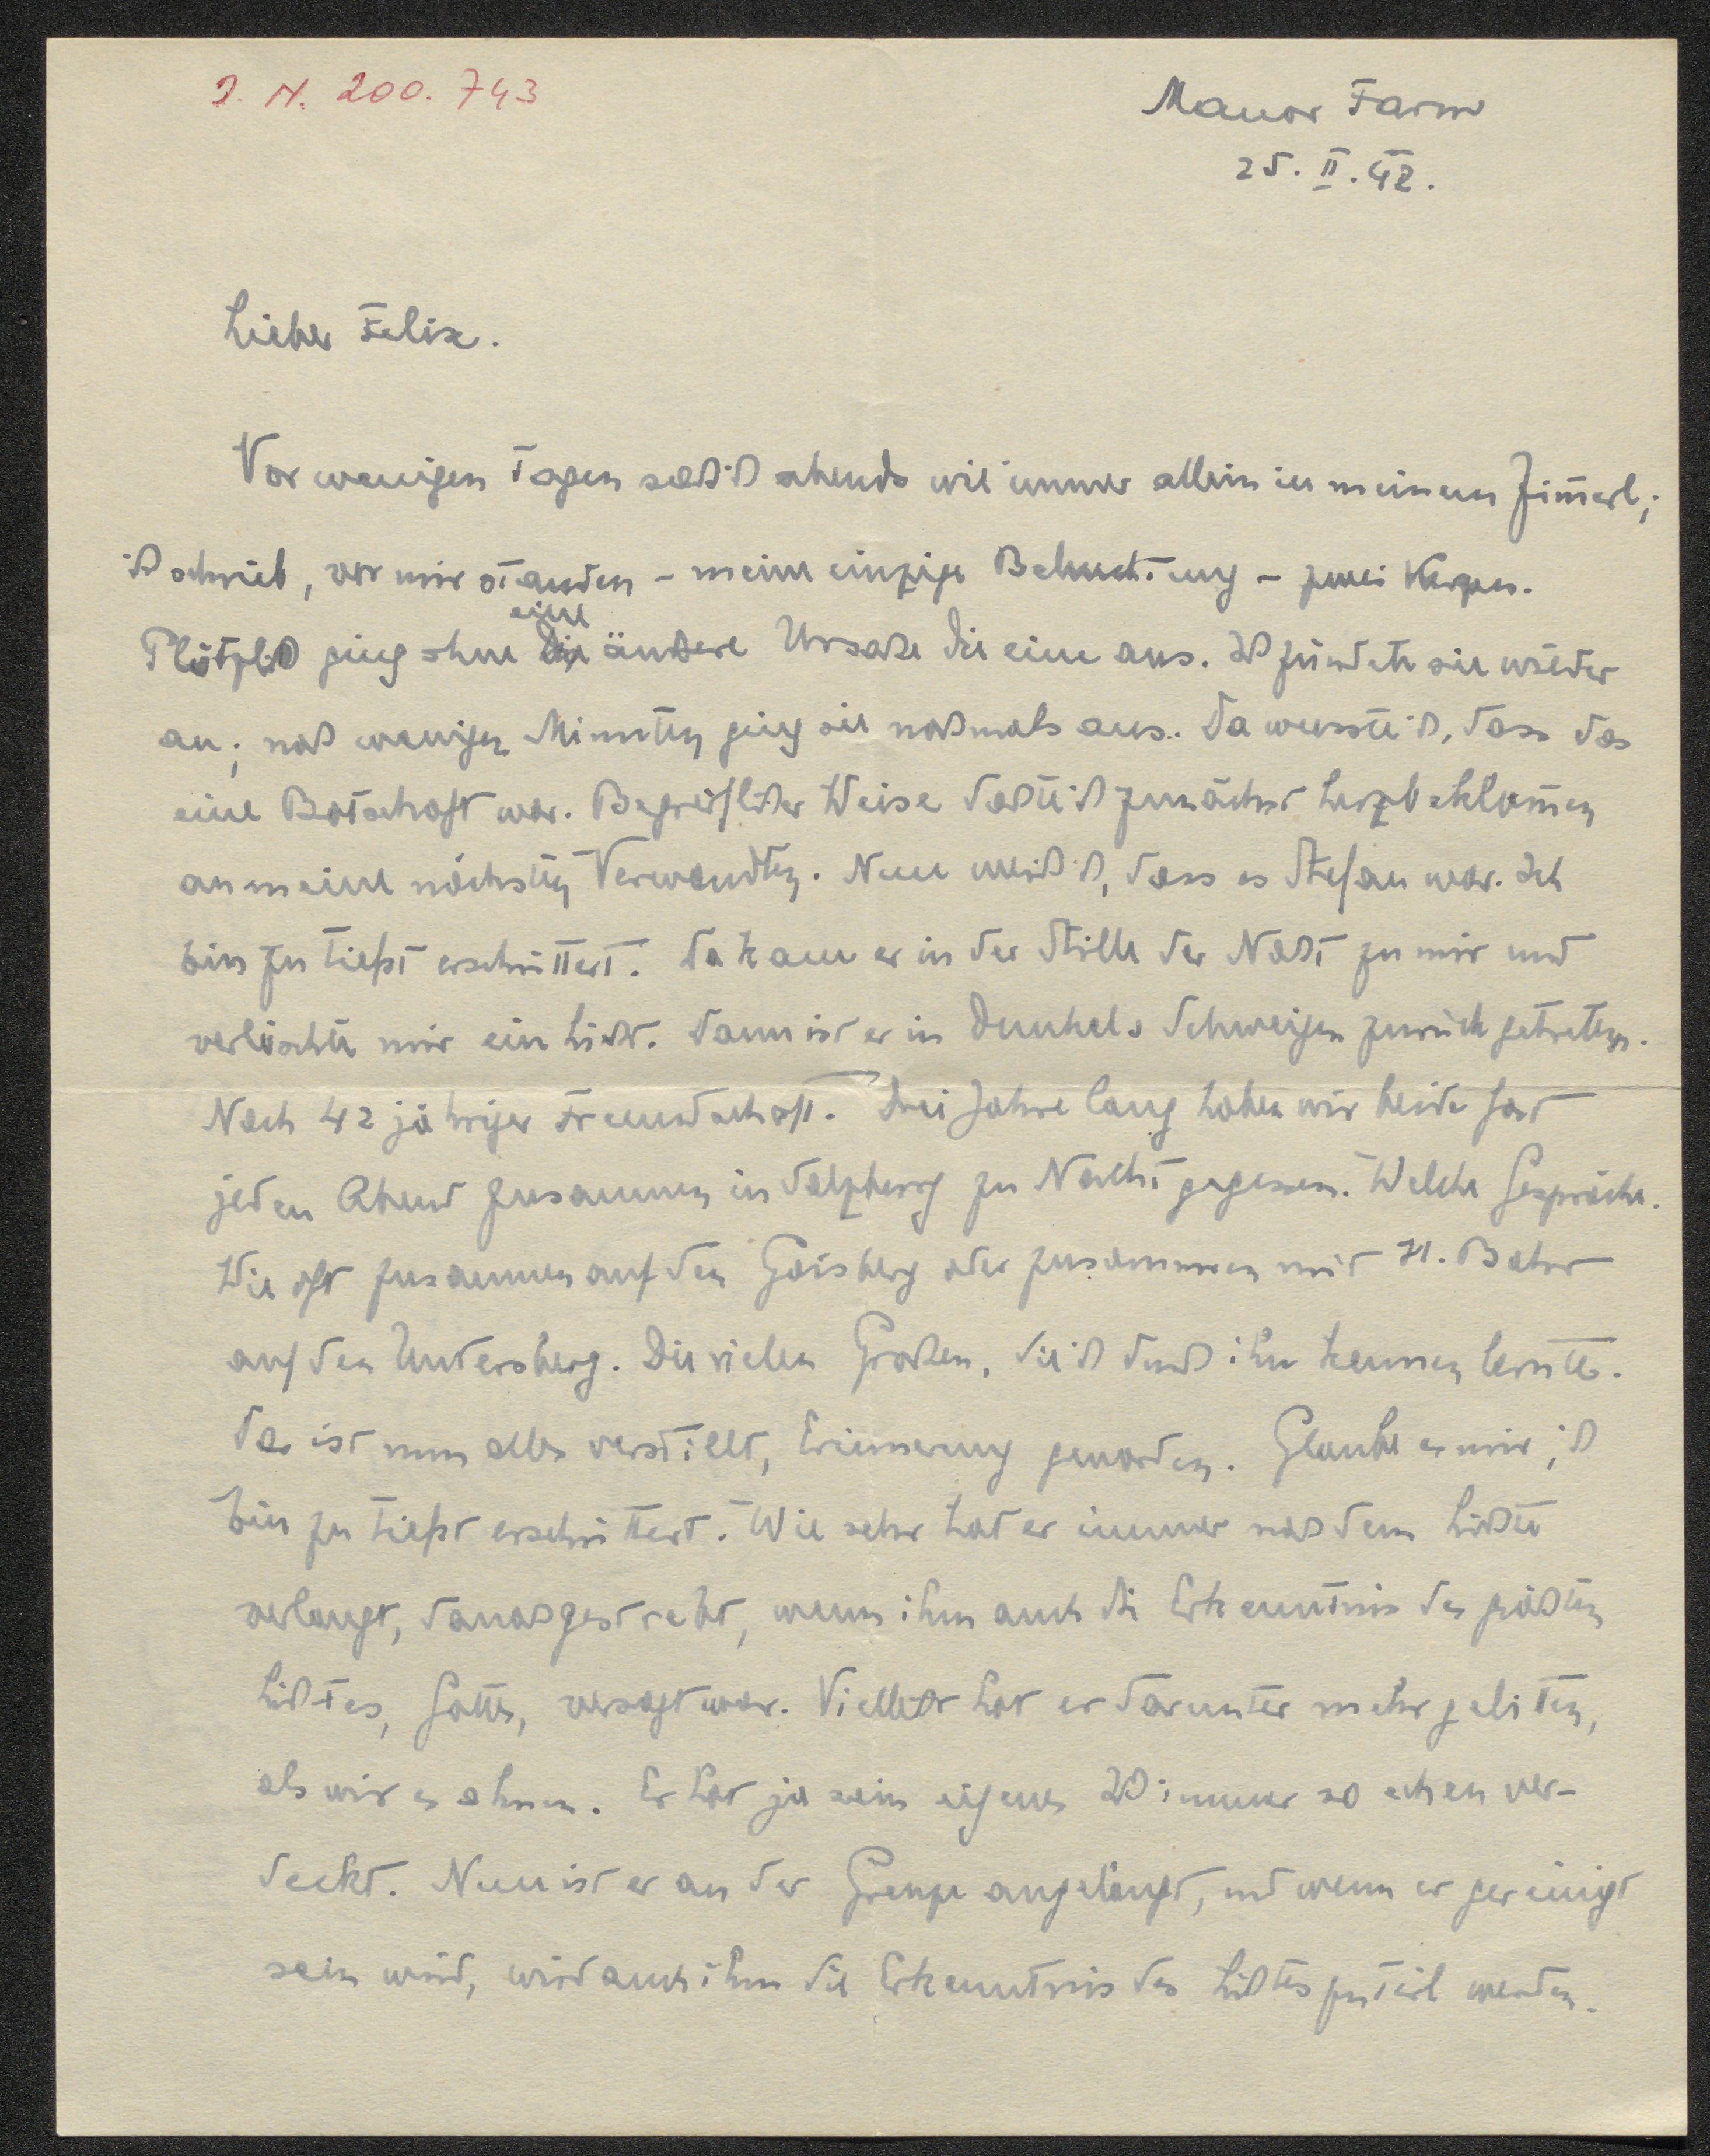 I. N. 200.743
Manor Farm
25. II. 42.
Lieber Felix.
Vor wenigen Tagen saß ich abends wie immer allein in meinem Zim̄erl;
ich schrieb, vor mir standen - meine einzige Beleuchtung - zwei Kerzen.
eine
Plötzlich ging ohne die äußere Ursache die eine aus. Ich zündete sie wieder
an; nach wenigen Minuten ging sie nochmals aus. Da wusste ich, dass das
eine Botschaft war. Begreiflicher Weise dachte ich zunächst herzbeklom̄en
an meine nächsten Verwandten. Nun weiß ich, dass es Stefan war. Ich
bin zu tiefst erschüttert. Da kam er in der Stille der Nacht zu mir und
verlöschte mir ein Licht. Dann ist er in dunkels Schweigen zurückgetreten.
Nach 42 jähriger Freundschaft. Drei Jahre lang haben wir beide fast
jeden Abend zusammen in Salzburg zu Nacht gegessen. Welche Gespräche.
Wie oft zusammen auf den Gaisberg oder zusammen mit H. Bahr
auf den Untersberg. Die vielen Großen, die ich durch ihn kennen lernte.
Das ist nun alles verstillt, Erinnerung geworden. Glaube es mir, ich
bin zu tiefst erschüttert. Wie sehr hat er immer nach dem Lichte
verlangt, danach gestrebt, wenn ihm auch die Erkenntnis des größten
Lichtes, Gottes, versagt war. Vielleicht hat er darunter mehr gelitten,
als wir es ahnen. Er hat ja sein eigenes Ich immer so scheu ver-
deckt. Nun ist er an der Grenze angelangt, und wenn er gereinigt
sein wird, wird auch ihm die Erkenntnis des Lichtes zuteil werden.